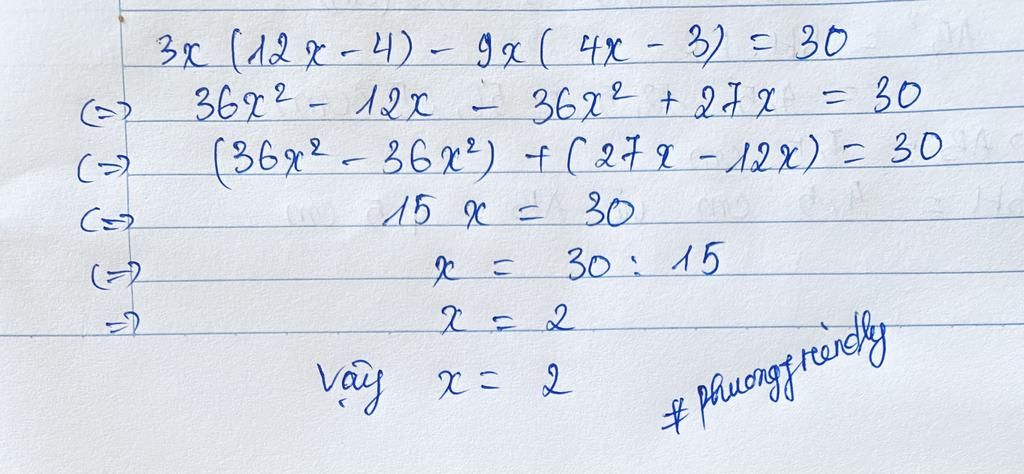 3x (12x - 4) - 9x ( 4x - 3) = 30
(=) 36x² - 12x - 36x² + 27x = 30
(=) (36x² - 36x²) + (27x - 12x) = 30
(=) 15 x = 30
(=) x = 30 : 15
=) x = 2
Vậy x = 2
#phuongfriendly